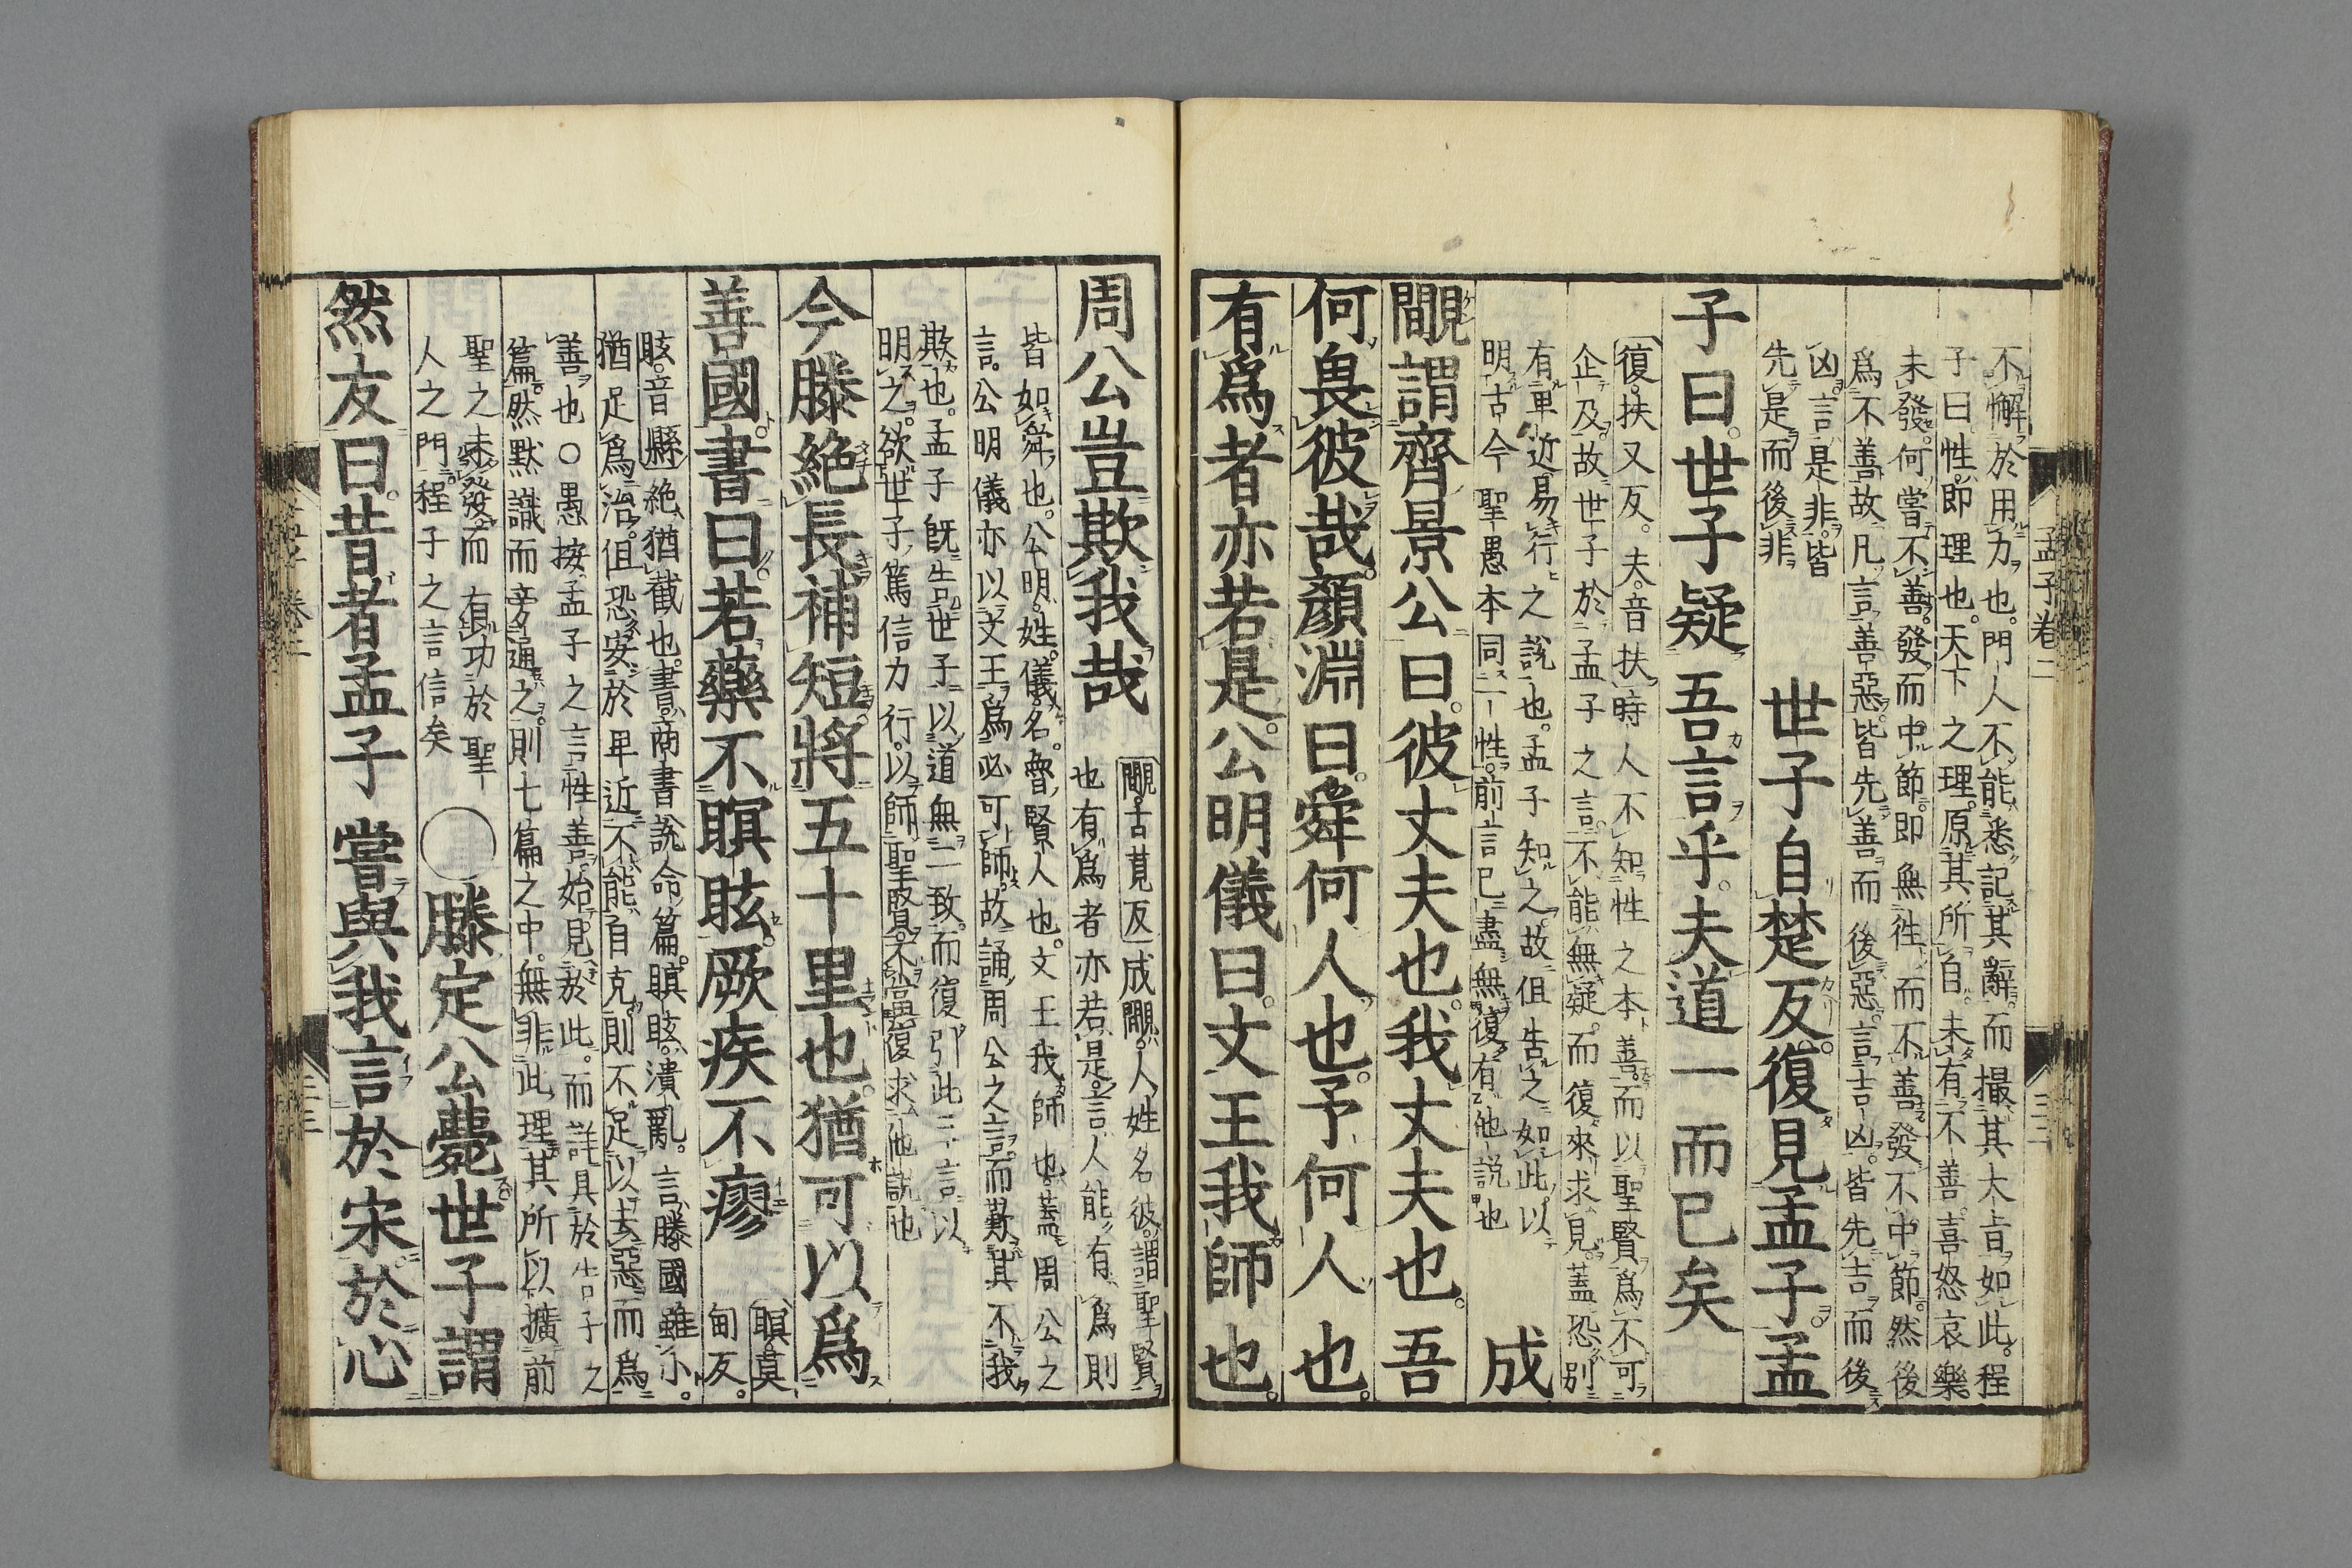 不懈於用力也。門人不能悉記其辭。而撮其大旨如此。程
子曰性。即理也。天下之理。原其所自。未有不善。喜怒哀樂。
未發。何嘗不善。發而中節。即無往而不善。發不中節。然後
爲不善。故凡言善惡。皆先善而後惡。言吉凶。皆先吉而後
凶。言是非。皆
先是而後非
世子自楚反。復見孟子。孟
子曰。世子疑吾言乎。夫道一而已矣
復。扶又反。夫音扶時人不知性之本善。而以聖賢爲不可
企及。故世子於孟子之言。不能無疑。而復來求見。蓋恐別
有卑近易行之說也。孟子知之。故但告之如此。以
明古今聖愚本同一性。前言已盡。無復有他說也
成
覵謂齊景公曰。彼丈夫也。我丈夫也。吾
何畏彼哉。顏淵曰。舜何人也。予何人也。
有爲者亦若是。公明儀曰。文王我師也。
周公豈欺我哉
覵。古莧反成覵。人姓名彼。謂聖賢
也有爲者亦若是。言人能有爲則
皆如舜也。公明。姓。儀。名。魯賢人也。文王我師也。蓋周公之
言。公明儀亦以文王爲必可師。故誦周公之言。而歎其不我
欺也。孟子旣告世子以道無二致。而復引此三言以
明之。欲世子篤信力行。以師聖賢。不當復求他說也
今滕絕長補短將五十里也。猶可以爲
善國。書曰。若藥不瞑眩。厥疾不瘳
瞑莫
甸反。
眩。音縣絶猶截也。書。商書說命篇。瞑眩。潰亂。言滕國雖小。
猶足爲治。但恐安於卑近不能自克則不足以去惡而爲
善也○愚按孟子之言性善。始見於此。而詳具於告子之
篇。然默識而旁通之。則七篇之中。無非此理。其所以擴前
聖之未發。而有功於聖
人之門。程子之言信矣
○滕定公薨世子謂
然友曰。昔者孟子嘗與我言於宋於心
孟子卷二
三三